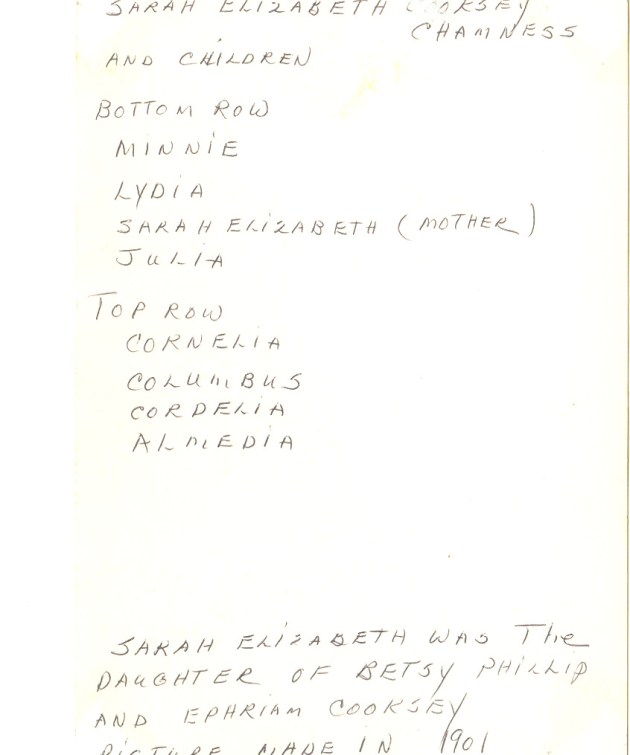 SARAH ELIZABETH COOKSEY
CHAMNESS
AND CHILDREN
BOTTOM ROW
MINNIE
LYDIA
SARAH ELIZABETH (MOTHER)
JULIA
TOP ROW
CORNELIA
COLUMBUS
CORDELIA
ALMEDIA
SARAH ELIZABETH WAS The
DAUGHTER OF BETSY PHILLIP
AND EPHRIAM COOKSEY
PICTURE MADE IN 1901